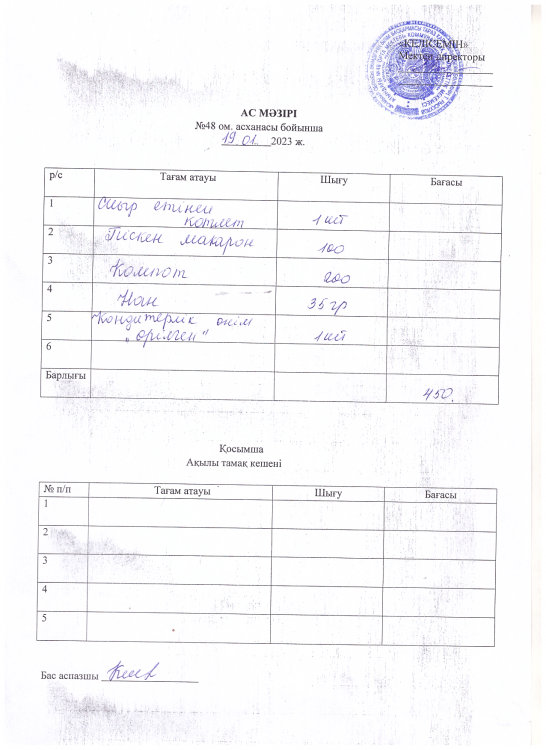 «КЕЛІСЕМІН»
Мектеп директоры
АС МӘЗІРІ
№48 ом. асханасы бойынша
19.01.2023 ж.
р/с Тағам атауы Шығу Бағасы
1 Сиыр етінен котлет 1 шт
2 Піскен макарон 100
3 Компот 200
4 Нан 35 гр
5 Кондитерлік өнім „өрілген“ 1 шт
6
Барлығы 450.
Қосымша
Ақылы тамақ кешені
№ п/п Тағам атауы Шығу Бағасы
1
2
3
4
5
Бас аспазшы